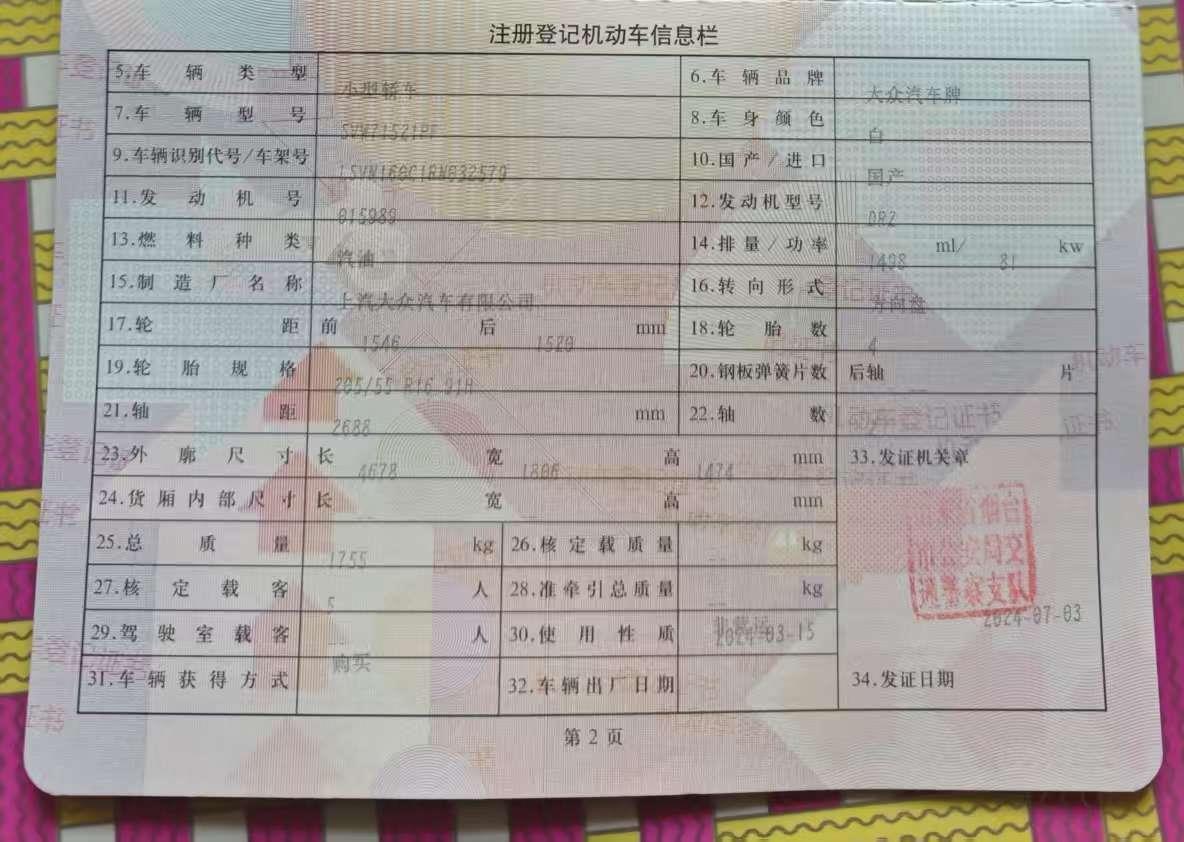 注册登记机动车信息栏
5.车辆类型 小型轿车 6.车辆品牌 大众汽车牌
7.车辆型号 SVW71521PF 8.车身颜色 白
9.车辆识别代号/车架号 10.国产/进口 国产
11.发动机号 015989 12.发动机型号 DRZ
13.燃料种类 汽油 14.排量/功率 1498 ml/ 81 kw
15.制造厂名称 上汽大众汽车有限公司 16.转向形式 方向盘
17.轮距 前 1546 后 1520 mm 18.轮胎数 4
19.轮胎规格 205/55 R16 91H 20.钢板弹簧片数 后轴 -- 片
21.轴距 2688 mm 22.轴数 2
23.外廓尺寸 长 4678 宽 1806 高 1474 mm 33.发证机关章
24.货厢内部尺寸 长 -- 宽 高 mm
25.总质量 1755 kg 26.核定载质量 -- kg
27.核定载客 5 人 28.准牵引总质量 -- kg
29.驾驶室载客 -- 人 30.使用性质 非营运
31.车辆获得方式 购买 32.车辆出厂日期 2024-03-15 34.发证日期 2024-07-03
省烟台
市公安局交
通警察支队
第 2 页